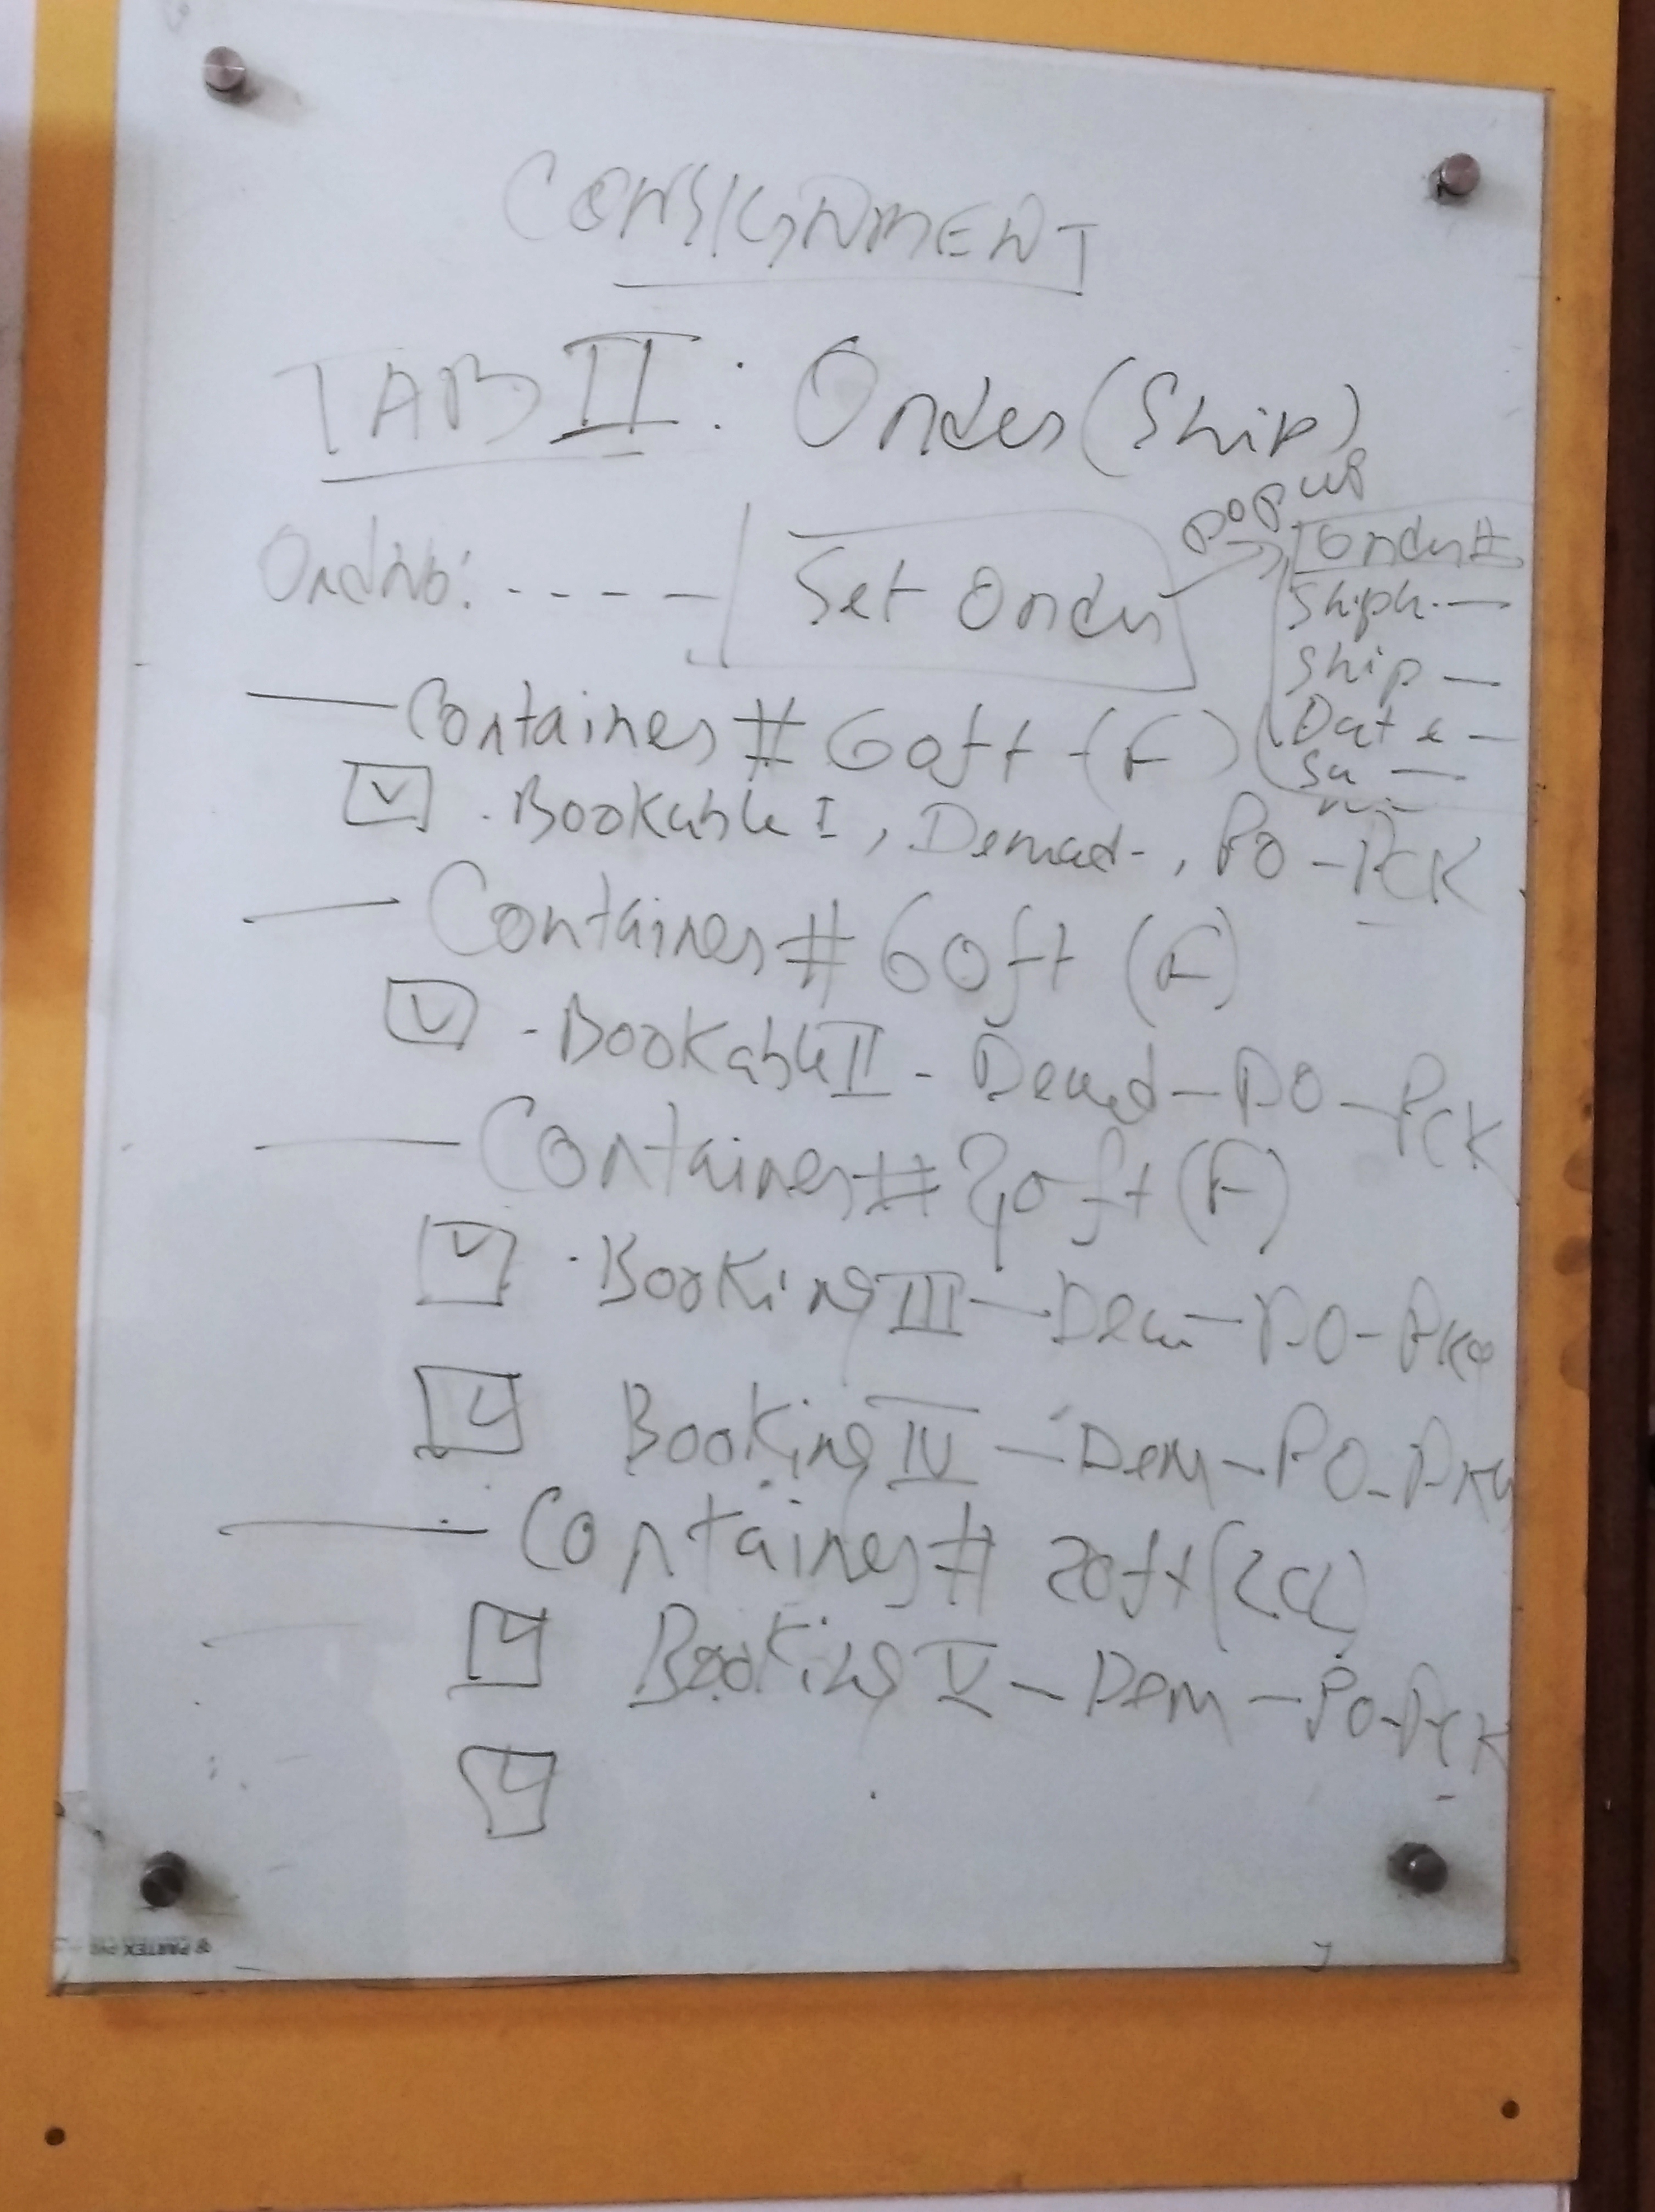 CONSIGNMENT
TAB II : Order (Ship)
Ord No: - - - - - Set Order
popup
Order #
Ship
Date
Container # 60ft (F)
. Bookable I, Demad-, PO - PCK
Container # 60ft (F)
- Bookable II - Demd - PO - PCK
Container # 20ft (F)
. Booking III - Dem - PO -
Booking IV - Dem - PO -
Container # 20ft
Booking V - Dem - PO - PCK